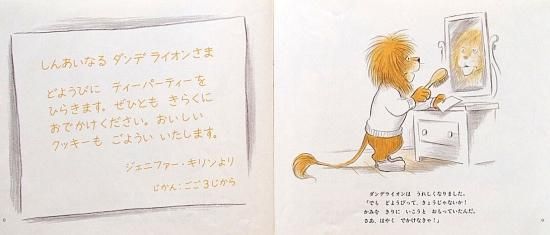 しんあいなる ダンデ ライオンさま
どようびに ティーパーティーを
ひらきます。ぜひとも きらくに
おでかけください。おいしい
クッキーも ごようい いたします。
ジェニファー・キリンより
じかん:ごご3じから
ダンデライオンは うれしくなりました。
「でも どようびって、きょうじゃないか!
かみを きりに いこうと おもっていたんだ。
さあ、はやく でかけなきゃ!」